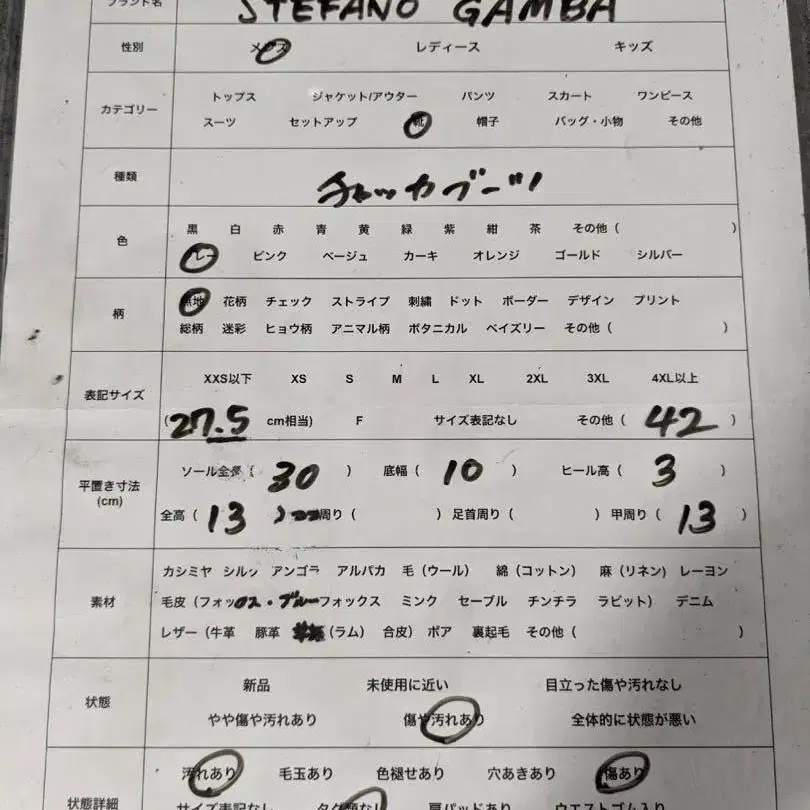 ブランド名 STEFANO GAMBA
性別 メンズ レディース キッズ
カテゴリー トップス ジャケット/アウター パンツ スカート ワンピース
スーツ セットアップ 靴 帽子 バッグ・小物 その他
種類 チャッカブーツ
色 黒 白 赤 青 黄 緑 紫 紺 茶 その他 ( )
グレー ピンク ベージュ カーキ オレンジ ゴールド シルバー
柄 無地 花柄 チェック ストライプ 刺繍 ドット ボーダー デザイン プリント
総柄 迷彩 ヒョウ柄 アニマル柄 ボタニカル ペイズリー その他 ( )
表記サイズ XXS以下 XS S M L XL 2XL 3XL 4XL以上
(27.5 cm相当) F サイズ表記なし その他 ( 42 )
平置き寸法 (cm) ソール全長 ( 30 ) 底幅 ( 10 ) ヒール高 ( 3 )
全高 ( 13 ) 周り ( ) 足首周り ( ) 甲周り ( 13 )
素材 カシミヤ シルク アンゴラ アルパカ 毛 (ウール) 綿 (コットン) 麻 (リネン) レーヨン
毛皮 (フォックス・ブルーフォックス ミンク セーブル チンチラ ラビット) デニム
レザー (牛革 豚革 (ラム) 合皮) ボア 裏起毛 その他 ( )
状態 新品 未使用に近い 目立った傷や汚れなし
やや傷や汚れあり 傷や汚れあり 全体的に状態が悪い
状態詳細 汚れあり 毛玉あり 色褪せあり 穴あきあり 傷あり
サイズ表記なし タグ類なし 肩パッドあり ウエストゴム入り